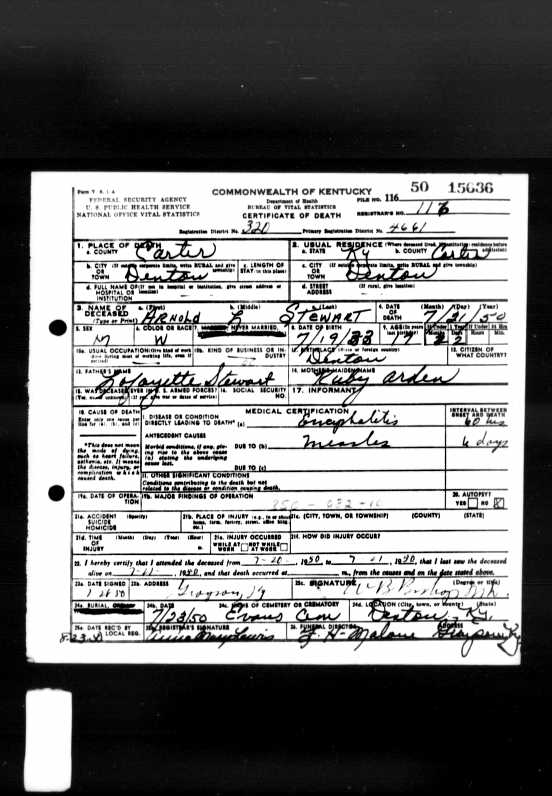 Form V. S. 1-A
FEDERAL SECURITY AGENCY
U. S. PUBLIC HEALTH SERVICE
NATIONAL OFFICE VITAL STATISTICS
COMMONWEALTH OF KENTUCKY
Department of Health
BUREAU OF VITAL STATISTICS
CERTIFICATE OF DEATH
FILE NO. 116 50 15636
REGISTRAR'S NO. 116
Registration District No. 320 Primary Registration District No. 4661
1. PLACE OF DEATH
a. COUNTY Carter
2. USUAL RESIDENCE (Where deceased lived. If institution: residence before admission)
a. STATE Ky b. COUNTY Carter
b. CITY (If outside corporate limits, write RURAL and give township) OR TOWN Denton
c. LENGTH OF STAY (in this place)
c. CITY (If outside corporate limits, write RURAL and give township) OR TOWN Denton
d. FULL NAME OF (If not in hospital or institution, give street address or location) HOSPITAL OR INSTITUTION
d. STREET ADDRESS (If rural, give location)
3. NAME OF DECEASED (Type or Print)
a. (First) ARNOLD b. (Middle) L c. (Last) STEWART
4. DATE OF DEATH (Month) (Day) (Year) 7/21/50
5. SEX M
6. COLOR OR RACE W
7. NEVER MARRIED,
8. DATE OF BIRTH 7/19/33
9. AGE (In years last birthday) 17
If Under 1 Year Months Days If Under 24 Hrs Hours Min. 2
10a. USUAL OCCUPATION (Give kind of work done during most of working life, even if retired)
10b. KIND OF BUSINESS OR INDUSTRY
11. BIRTHPLACE (State or foreign country) Denton
12. CITIZEN OF WHAT COUNTRY?
13. FATHER'S NAME Lafayette Stewart
14. MOTHER'S MAIDEN NAME Ruby Arden
15. WAS DECEASED EVER IN U. S. ARMED FORCES? (Yes, no, or unknown) (If yes, give war or dates of service)
16. SOCIAL SECURITY NO.
17. INFORMANT
18. CAUSE OF DEATH
Enter only one cause per line for (a), (b), and (c)
*This does not mean the mode of dying, such as heart failure, asthenia, etc. It means the disease, injury, or complication which caused death.
MEDICAL CERTIFICATION
INTERVAL BETWEEN ONSET AND DEATH
I. DISEASE OR CONDITION DIRECTLY LEADING TO DEATH* (a) Encephalitis 60 hrs
ANTECEDENT CAUSES
Morbid conditions, if any, giving rise to the above cause (a) stating the underlying cause last.
DUE TO (b) measles 6 days
DUE TO (c)
II. OTHER SIGNIFICANT CONDITIONS
Conditions contributing to the death but not related to the disease or condition causing death.
19a. DATE OF OPERATION
19b. MAJOR FINDINGS OF OPERATION
20. AUTOPSY? YES NO X
21a. ACCIDENT SUICIDE HOMICIDE (Specify)
21b. PLACE OF INJURY (e.g., in or about home, farm, factory, street, office bldg., etc.)
21c. (CITY, TOWN, OR TOWNSHIP) (COUNTY) (STATE)
21d. TIME OF INJURY (Month) (Day) (Year) (Hour) m.
21e. INJURY OCCURRED WHILE AT WORK NOT WHILE AT WORK
21f. HOW DID INJURY OCCUR?
22. I hereby certify that I attended the deceased from 7-20-, 1950, to 7-21, 1950, that I last saw the deceased
alive on, 1950, and that death occurred at m., from the causes and on the date stated above.
23a. DATE SIGNED
23b. ADDRESS Grayson, Ky
23c. SIGNATURE (Degree or title)
24a. BURIAL,
24b. DATE 7/23/50
24c. NAME OF CEMETERY OR CREMATORY Evans Cem
24d. LOCATION (City, town, or county) (State) Denton Ky.
25a. DATE REC'D BY LOCAL REG. 8-23-50
25b. REGISTRAR'S SIGNATURE Anna Mary Lewis
26. FUNERAL DIRECTOR F. H. Malone
ADDRESS Grayson Ky